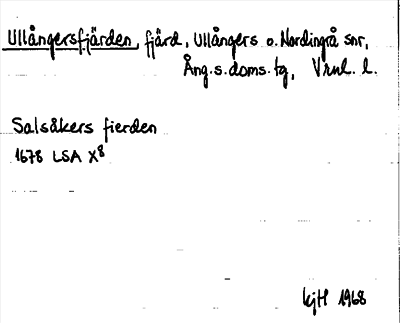 Ullångersfjärden, fjärd, Ullångers o. Nordingrå snr,
Ång. s. doms. tg, Vrnl. l.
Salsåkers fierden
1678 LSA X8
kjH 1968